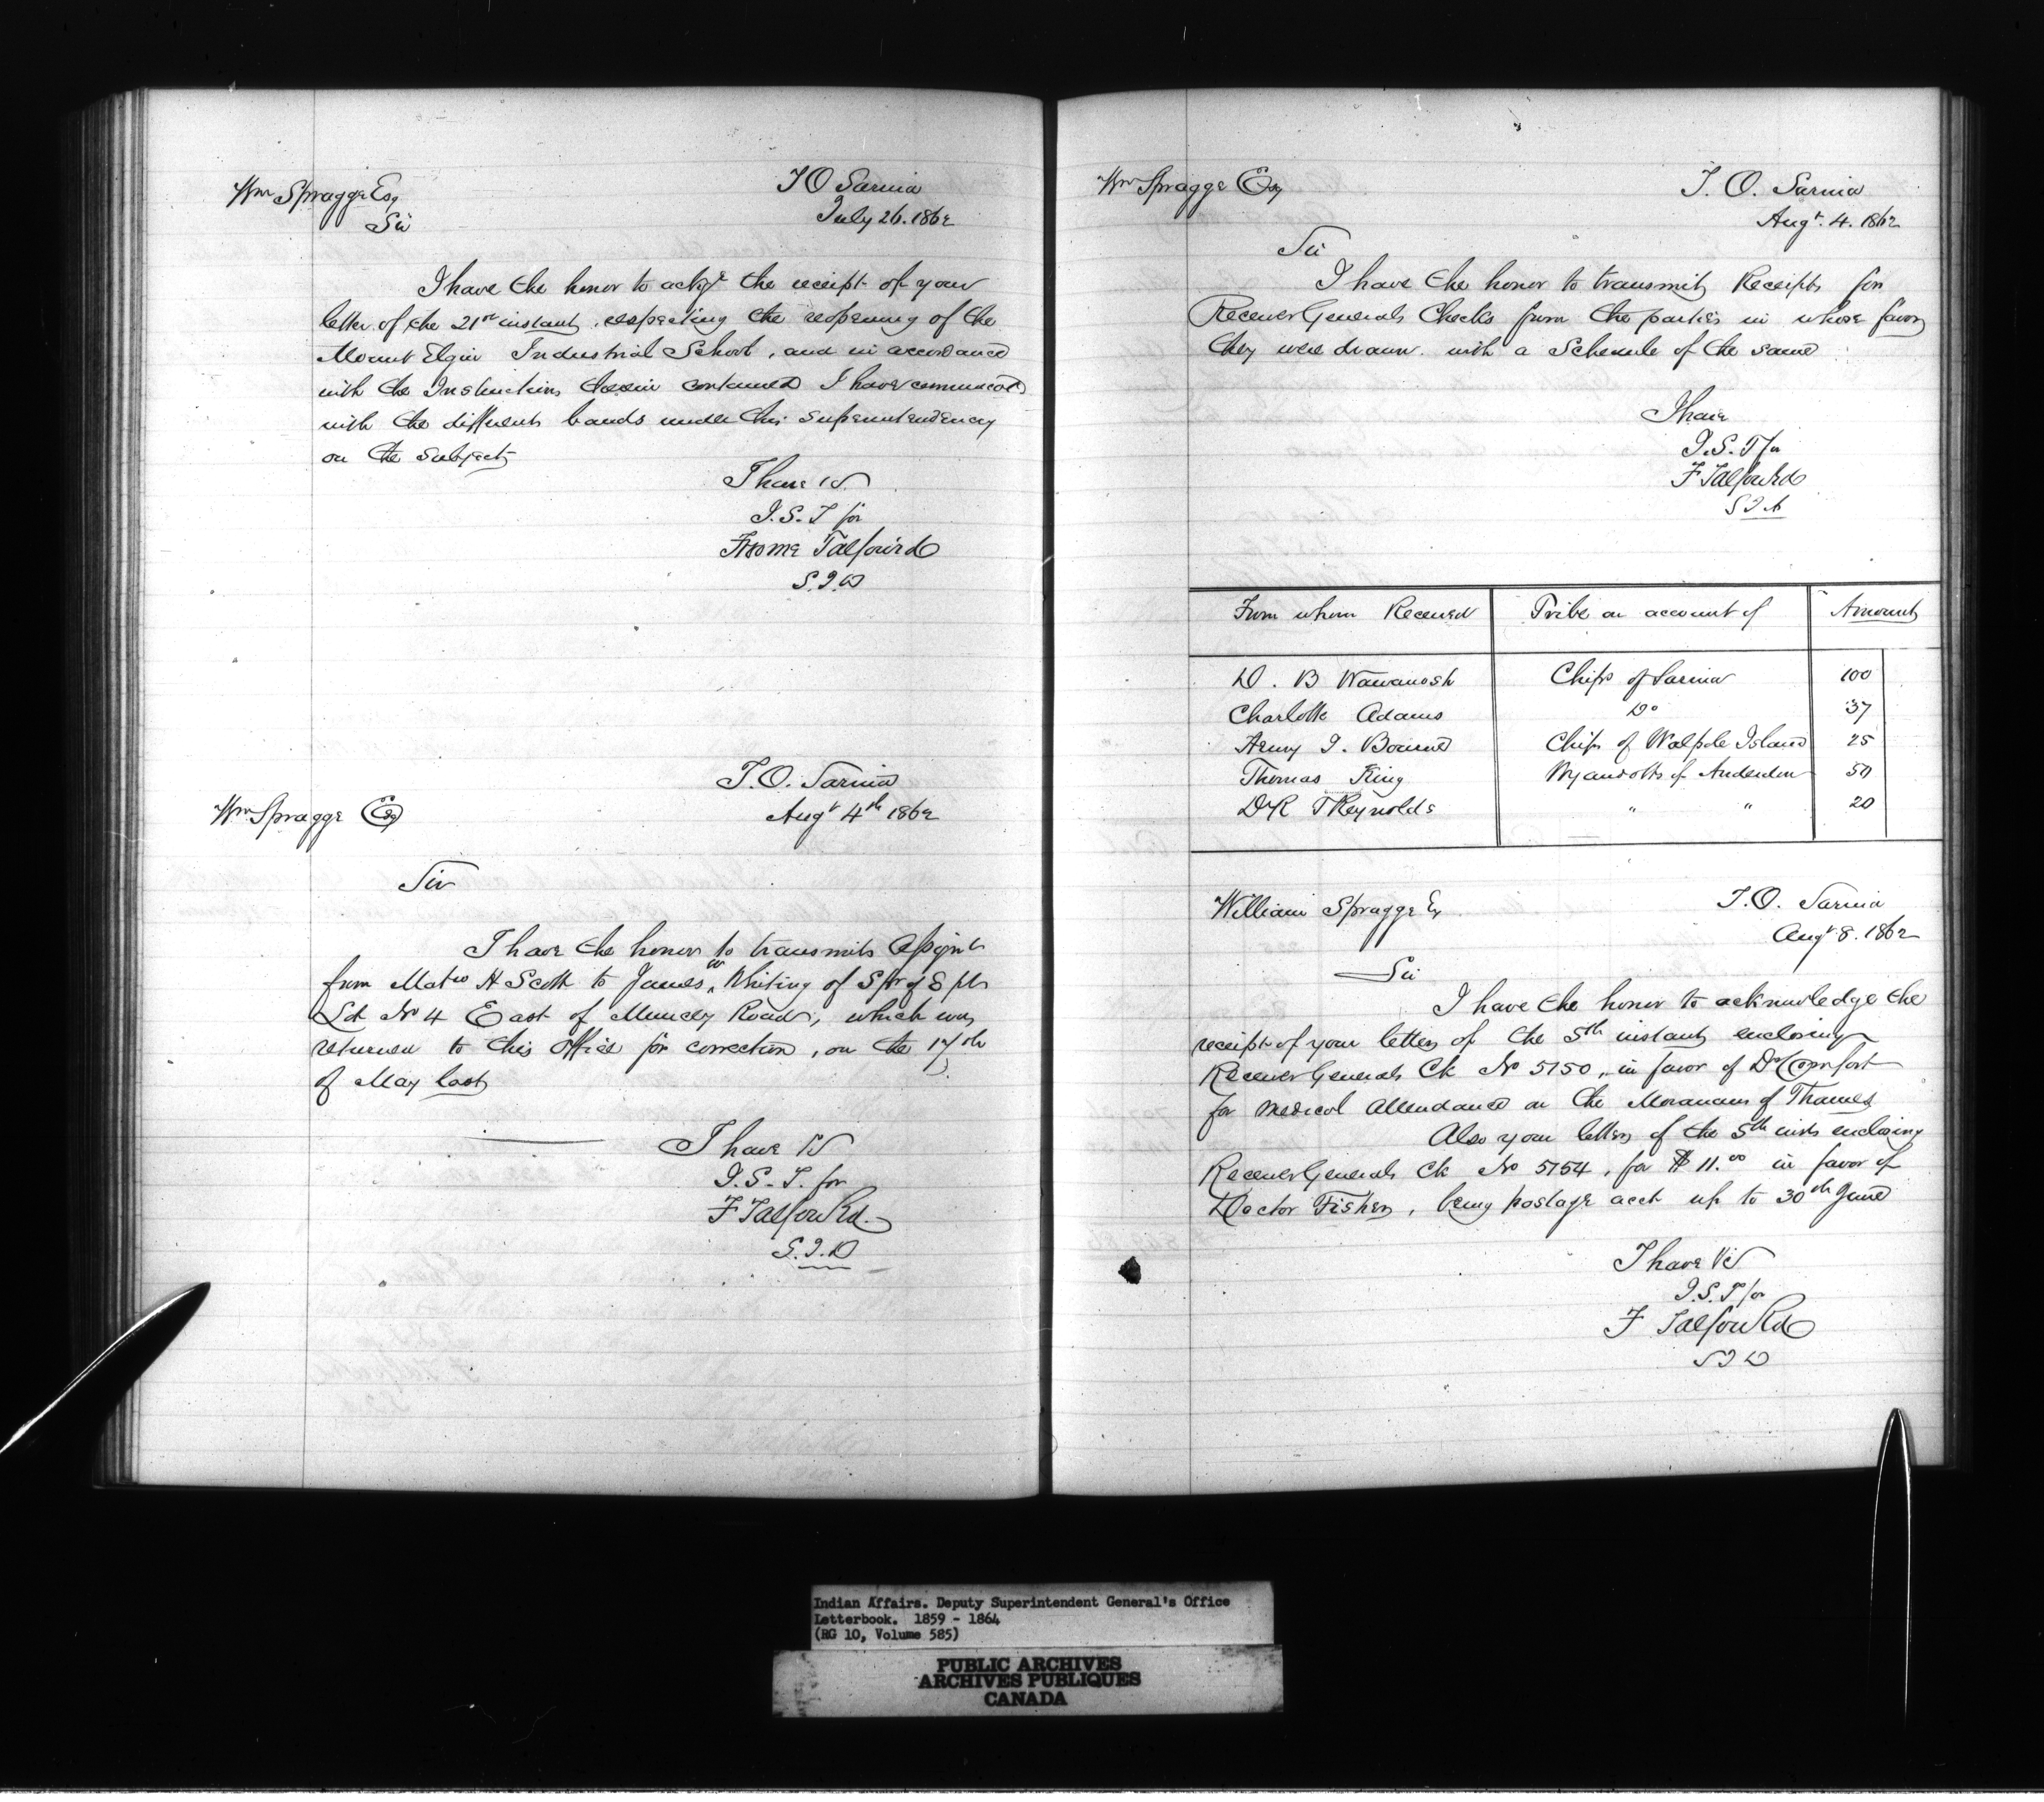 Wm Spragge Esq
Sir
I O Sarnia
July 26. 1862
I have the honor to ackg the receipt of your
letter of the 21st instant, respecting the reopening of the
Mount Elgin Industrial School, and in accordance
with the Instructions therein contained I have
with the different bands under this Superintendency
on the subject
I have
J.S.T for
Froome Talfourd
I.O. Sarnia
Augt 4th 1862
Wm Spragge Esq
Sir
I have the honor to transmit
from H Scott to James W Whiting of
Lot No 4 East of Muncey Road, which was
returned to this Office for correction, on the 17th
of May last
I have
J.S.T. for
F Talfourd
Wm Spragge Esq
I. O. Sarnia
Augt. 4. 1862
Sir
I have the honor to transmit Receipts for
Receiver Generals Checks from the parties in whose favor
they were drawn with a Schedule of the same
I have
J.S.T for
F Talfourd
From whom Received Tribe on account of Amount
D. B Wawanosh Chips of Sarnia 100
Charlotte Adams Do 37
Henry J. Bourne Chips of Walpole Island 25
Thomas King Wyandotts of Anderdon 50
DR T Reynolds " " 20
William Spragge Esq
I.O. Sarnia
Augt 8. 1862
Sir
I have the honor to acknowledge the
receipt of your letter of the 5th instant enclosing
Receiver Generals Ck No 5150, in favor of Dr Comfort
for medical attendance on the Moravians of Thames
Also your letter of the 5th inst enclosing
Receiver Generals Ck No 5154, for $11.00 in favor of
Doctor Fisher, being postage acct up to 30th June
I have
J.S.T for
F Talfourd
Indian Affairs. Deputy Superintendent General's Office
Letterbook. 1859 - 1864
(RG 10, Volume 585)
PUBLIC ARCHIVES
ARCHIVES PUBLIQUES
CANADA